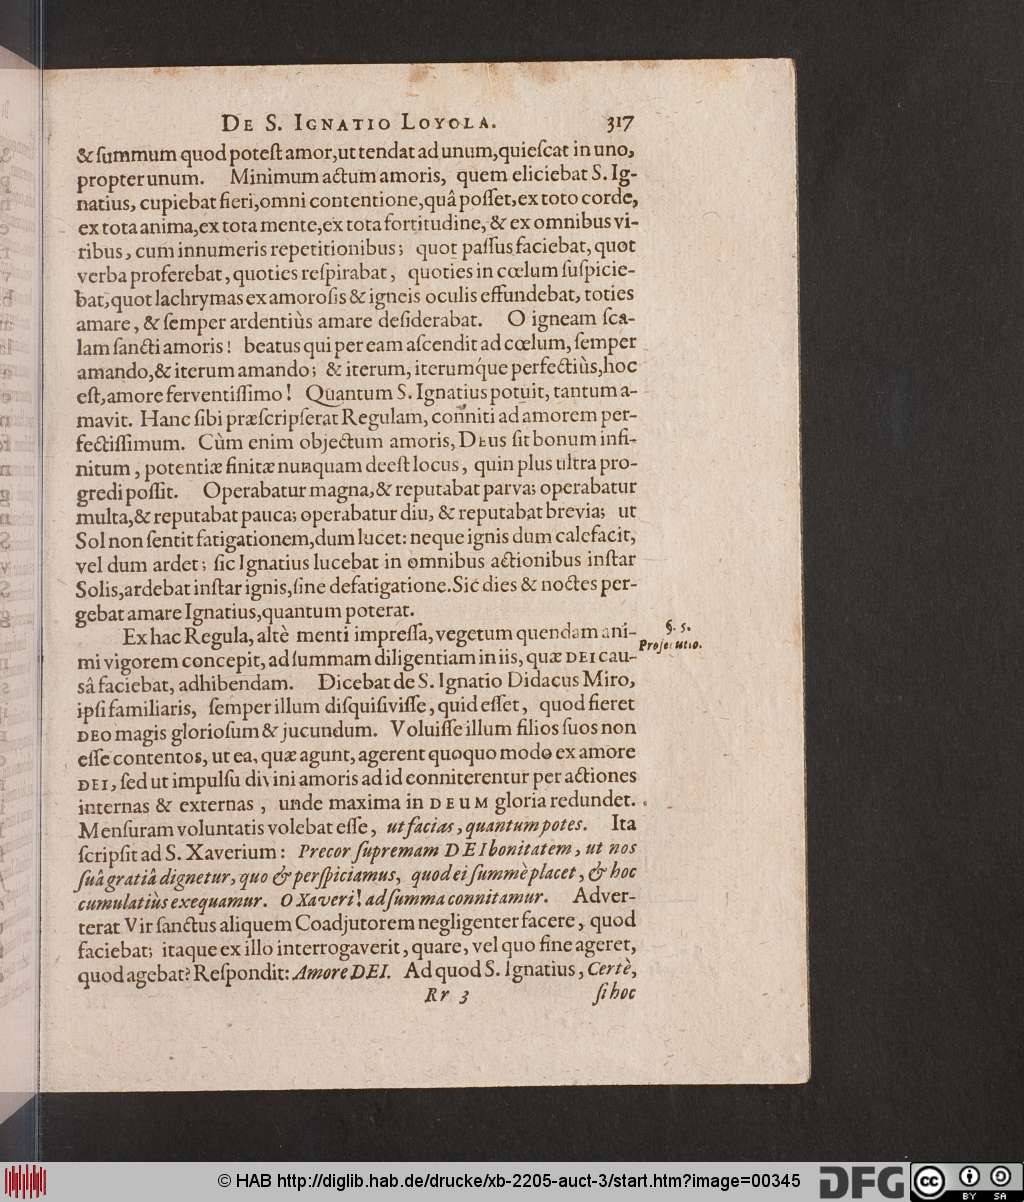 DE S. IGNATIO LOYOLA. 317
& ſummum quod poteſt amor, ut tendat ad unum, quieſcat in uno,
propter unum. Minimum actum amoris, quem eliciebat S. Ig-
natius, cupiebat fieri, omni contentione, quâ poſſet, ex toto corde,
ex tota anima, ex tota mente, ex tota fortitudine, & ex omnibus vi-
ribus, cum innumeris repetitionibus; quot paſſus faciebat, quot
verba proferebat, quoties reſpirabat, quoties in cœlum ſuſpicie-
bat, quot lachrymas ex amoroſis & igneis oculis effundebat, toties
amare, & ſemper ardentiùs amare deſiderabat. O igneam ſca-
lam ſancti amoris! beatus qui per eam aſcendit ad cœlum, ſemper
amando, & iterum amando; & iterum, iterumq́ue perfectiùs, hoc
eſt, amore ferventiſſimo! Quantum S. Ignatius potuit, tantum a-
mavit. Hanc ſibi præſcripſerat Regulam, conniti ad amorem per-
fectiſſimum. Cùm enim objectum amoris, DEus ſit bonum infi-
nitum, potentiæ finitæ nunquam deeſt locus, quin plus ultra pro-
gredi poſſit. Operabatur magna, & reputabat parva; operabatur
multa, & reputabat pauca; operabatur diu, & reputabat brevia; ut
Sol non ſentit fatigationem, dum lucet: neque ignis dum calefacit,
vel dum ardet; ſic Ignatius lucebat in omnibus actionibus inſtar
Solis, ardebat inſtar ignis, ſine defatigatione. Sic dies & noctes per-
gebat amare Ignatius, quantum poterat.
Ex hac Regula, altè menti impreſſa, vegetum quendam ani-
§. 5.
Projecutio.
mi vigorem concepit, ad ſummam diligentiam in iis, quæ DEI cau-
sâ faciebat, adhibendam. Dicebat de S. Ignatio Didacus Miro,
ipſi familiaris, ſemper illum diſquiſiviſſe, quid eſſet, quod fieret
DEO magis glorioſum & jucundum. Voluiſſe illum filios ſuos non
eſſe contentos, ut ea, quæ agunt, agerent quoquo modo ex amore
DEI, ſed ut impulſu divini amoris ad id conniterentur per actiones
internas & externas, unde maxima in DEUM gloria redundet.
Menſuram voluntatis volebat eſſe, ut facias, quantum potes. Ita
ſcripſit ad S. Xaverium: Precor ſupremam DEI bonitatem, ut nos
ſuâ gratiâ dignetur, quo & perſpiciamus, quod ei ſummè placet, & hoc
cumulatiùs exequamur. O Xaveri! ad ſumma connitamur. Adver-
terat Vir ſanctus aliquem Coadjutorem negligenter facere, quod
faciebat; itaque ex illo interrogaverit, quare, vel quo fine ageret,
quod agebat? Reſpondit: Amore DEI. Ad quod S. Ignatius, Certè,
Rr 3 ſi hoc
© HAB http://diglib.hab.de/drucke/xb-2205-auct-3/start.htm?image=00345
DFG
cc
BY SA